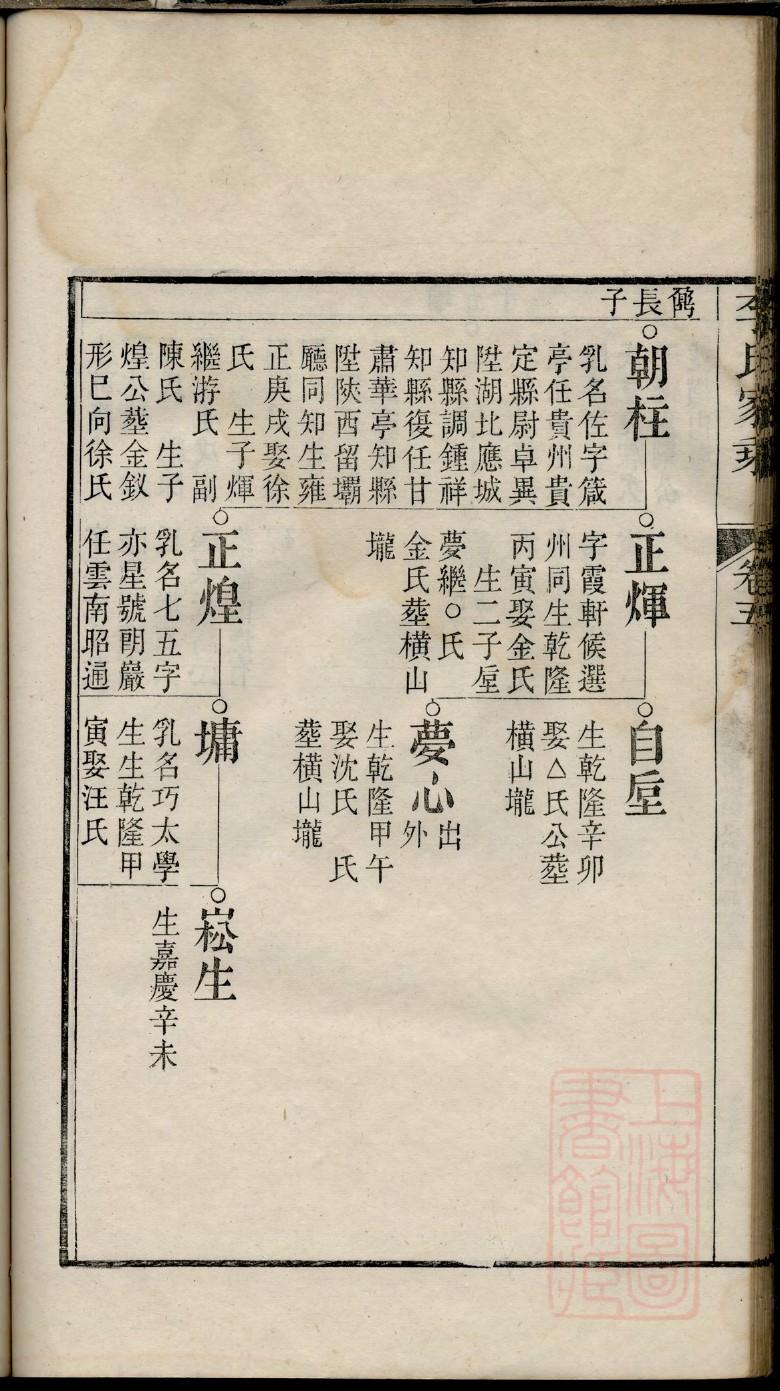 李氏家乘
卷五
鵷長子
朝柱
乳名佐字箴
亭任貴州貴
定縣尉卓異
陞湖北應城
知縣調鍾祥
知縣復任甘
肅華亭知縣
陞陝西留壩
廳同知生雍
正庚戌娶徐
氏 生子煇
繼游氏 副
陳氏 生子
煌公塟金釵
形巳向徐氏
正煇
字霞軒候選
州同生乾隆
丙寅娶金氏
生二子垕
夢繼○氏
金氏塟橫山
壠
自垕
生乾隆辛卯
娶△氏公塟
橫山壠
夢心
出
外
生乾隆甲午
娶沈氏 氏
塟橫山壠
正煌
乳名七五字
亦星號朗巖
任雲南昭通
墉
乳名巧太學
生生乾隆甲
寅娶汪氏
崧生
生嘉慶辛未
上海圖
書館藏